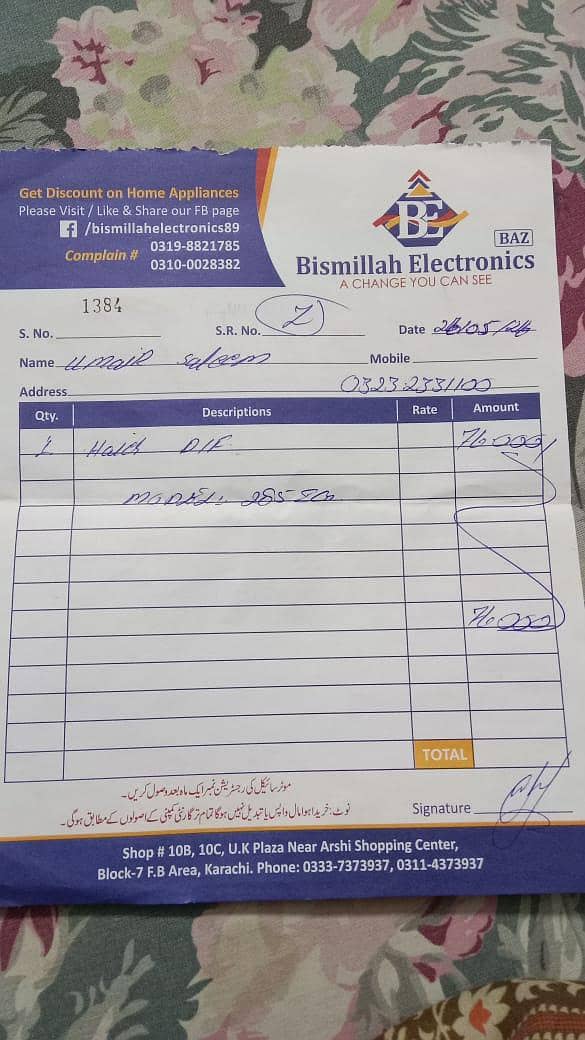 Get Discount on Home Appliances
Please Visit / Like & Share our FB page
f /bismillahelectronics89
Complain # 0319-8821785
0310-0028382
BE
BAZ
Bismillah Electronics
A CHANGE YOU CAN SEE
1384
S. No.
S.R. No.
Date 26/05/26
Name umair saleem
Mobile
Address
03232331100
Qty. Descriptions Rate Amount
1 D/F
MODEL: 285
TOTAL
موٹر سائیکل کی رجسٹریشن نمبر ایک ماہ بعد وصول کریں۔
نوٹ: خریدا ہوا مال واپس یا تبدیل نہیں ہوگا تمام تر گارنٹی کمپنی کے اصولوں کے مطابق ہوگی۔
Signature
Shop # 10B, 10C, U.K Plaza Near Arshi Shopping Center,
Block-7 F.B Area, Karachi. Phone: 0333-7373937, 0311-4373937